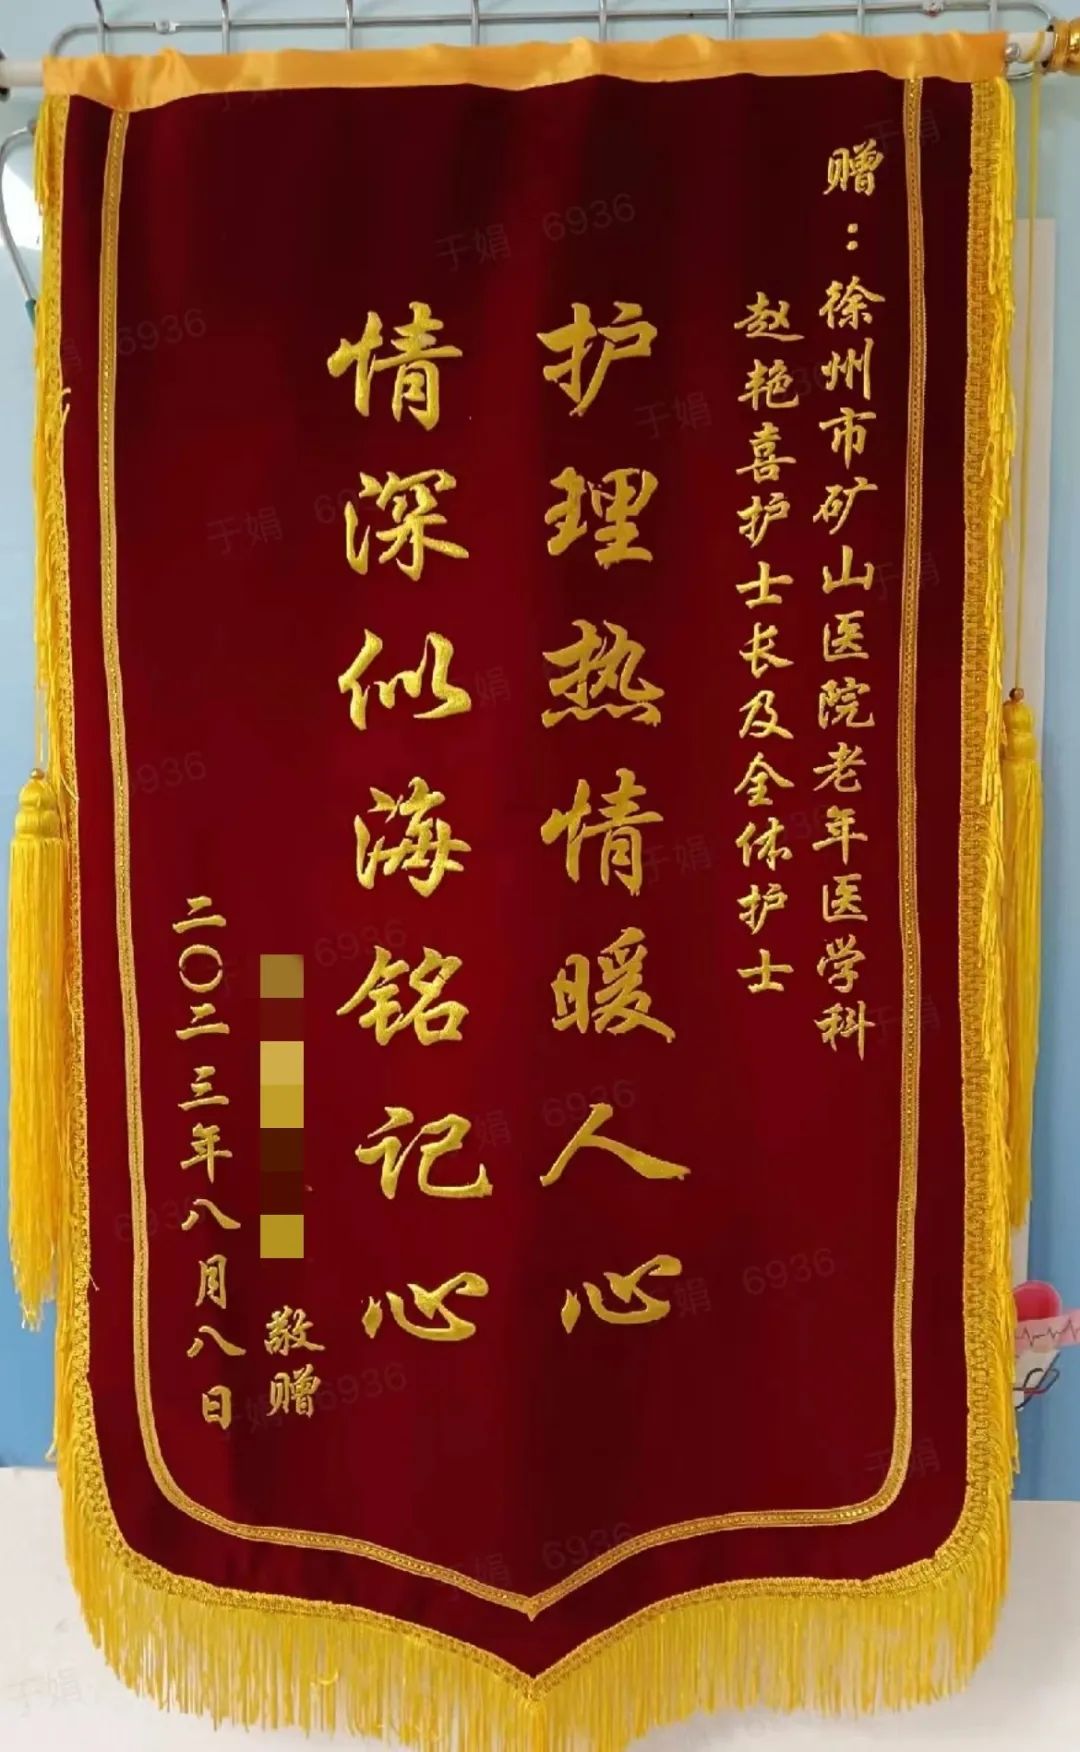 赠：徐州市矿山医院老年医学科
赵艳喜护士长及全体护士
护理热情暖人心
情深似海铭记心
敬赠
二〇二三年八月八日
于娟 6936